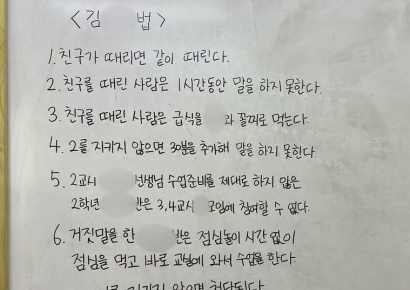 <김 법>
1. 친구가 때리면 같이 때린다.
2. 친구를 때린 사람은 1시간동안 말을 하지 못한다.
3. 친구를 때린 사람은 급식을 와 꼴찌로 먹는다.
4. 2를 지키지 않으면 30분을 추가해 말을 하지 못한다.
5. 2교시 선생님 수업준비를 제대로 하지 않은
2학년 반은 3,4교시 모임에 참여할 수 없다.
6. 거짓말을 한 반은 점심놀이 시간 없이
점심을 먹고 바로 교실에 와서 수업을 한다.
지키지 않으면